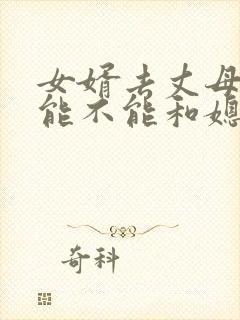 女婿去丈母
能不能和媳
奇科